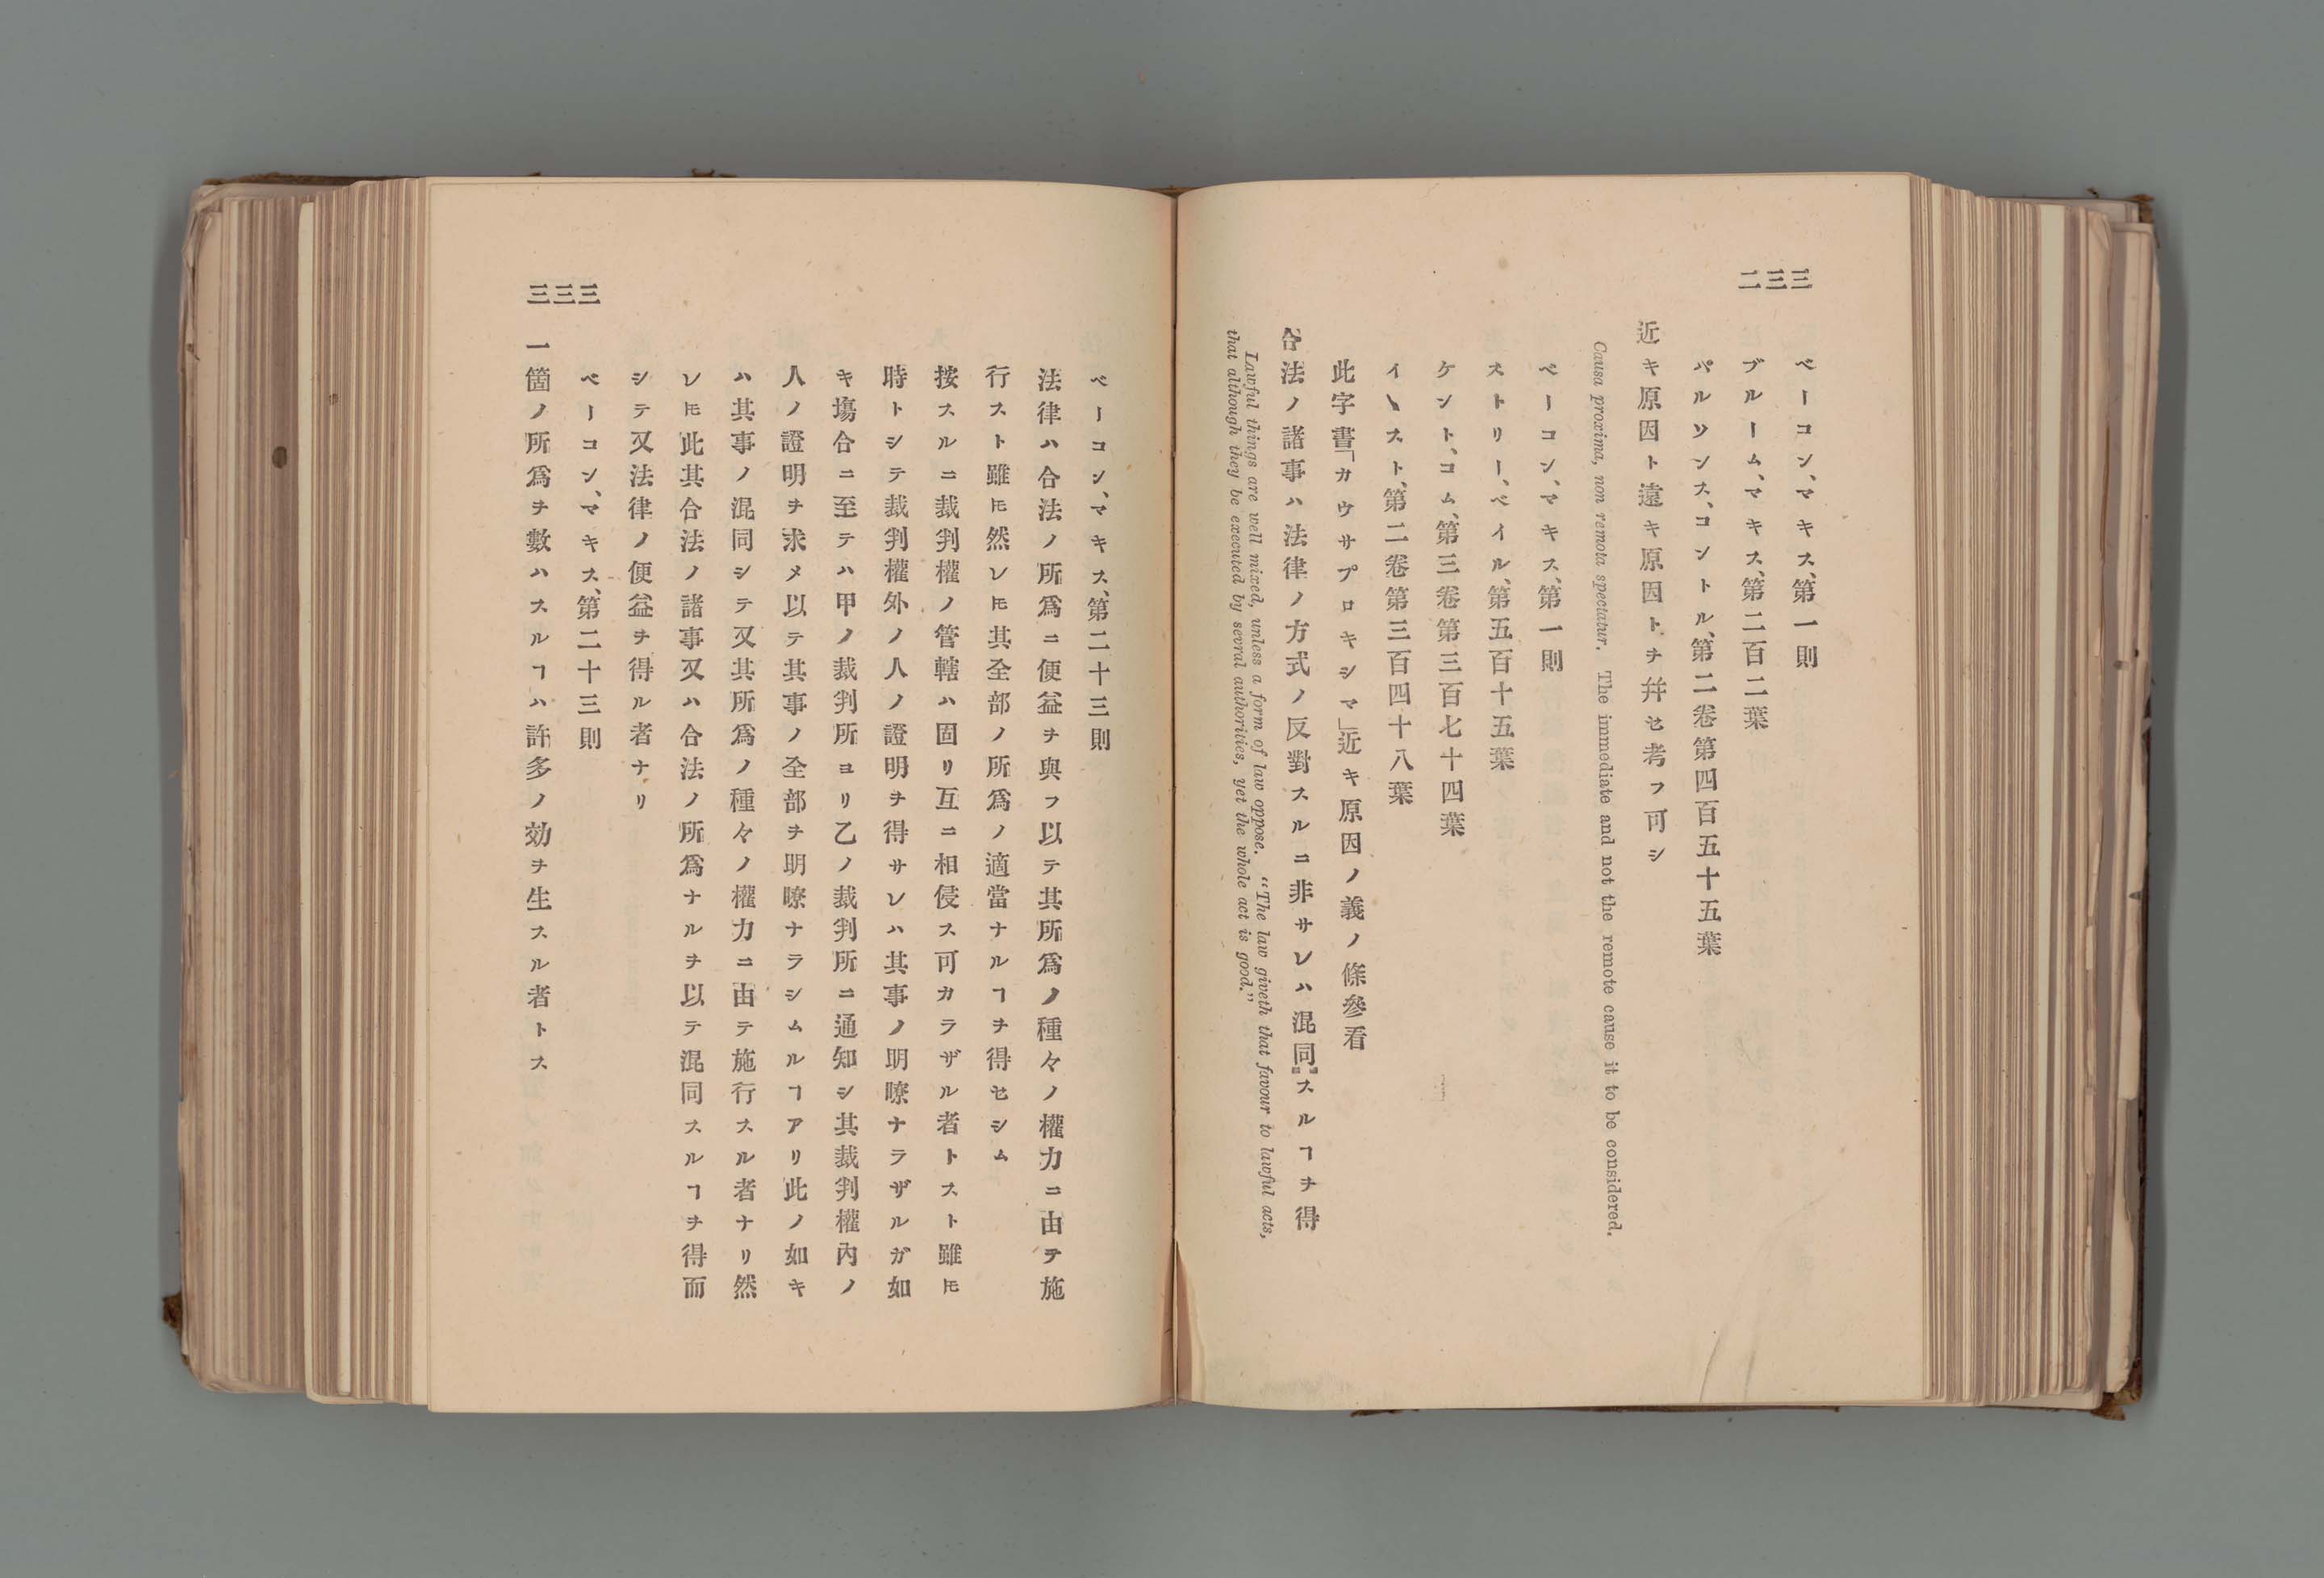 二三三
ベーコン、マキス、第一則
ブルーム、マキス、第二百二葉
パルソンス、コントル、第二卷第四百五十五葉
近キ原因ト遠キ原因トヲ幷セ考フ可シ
Causa proxima, non remota spectatur. The immediate and not the remote cause it to be considered.
ベーコン、マキス、第一則
ストリー、ベイル、第五百十五葉
ケント、コム、第三卷第三百七十四葉
イヽスト、第二卷第三百四十八葉
此字書「カウサプロキシマ」近キ原因ノ義ノ條參看
合法ノ諸事ハ法律ノ方式ノ反對スルニ非サレハ混同スルヿヲ得
Lawful things are well mixed, unless a form of law oppose. “The law giveth that favour to lawful acts,
that although they be executed by several authorities, yet the whole act is good.”
三三三
ベーコン、マキス、第二十三則
法律ハ合法ノ所爲ニ便益ヲ與フ以テ其所爲ノ種々ノ權力ニ由テ施
行スト雖𪜈然レ𪜈其全部ノ所爲ノ適當ナルヿヲ得セシム
按スルニ裁判權ノ管轄ハ固リ互ニ相侵ス可カラザル者トスト雖𪜈
時トシテ裁判權外ノ人ノ證明ヲ得サレハ其事ノ明瞭ナラザルガ如
キ塲合ニ至テハ甲ノ裁判所ヨリ乙ノ裁判所ニ通知シ其裁判權內ノ
人ノ證明ヲ求メ以テ其事ノ全部ヲ明瞭ナラシムルヿアリ此ノ如キ
ハ其事ノ混同シテ又其所爲ノ種々ノ權力ニ由テ施行スル者ナリ然
レ𪜈此其合法ノ諸事又ハ合法ノ所爲ナルヲ以テ混同スルヿヲ得而
シテ又法律ノ便益ヲ得ル者ナリ
ベーコン、マキス、第二十三則
一箇ノ所爲ヲ數ハスルヿハ許多ノ効ヲ生スル者トス